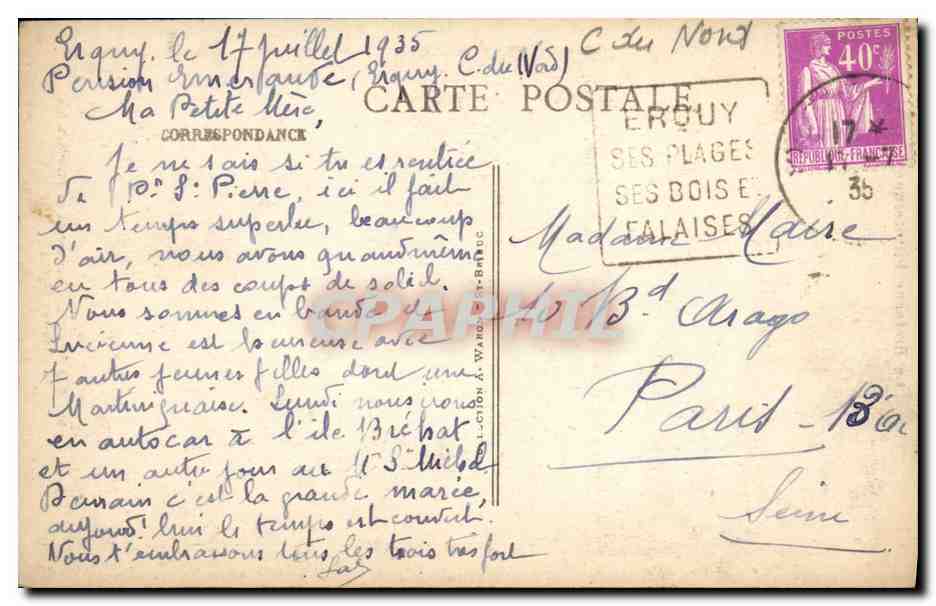 Erquy. le 17 Juillet 1935
Pension Emeraude, (Erquy. C. du (Nord)
Ma Petite Mère,
C du Nord
POSTES
40c
REPUBLIQUE FRANÇAISE
CARTE POSTALE
CORRESPONDANCE
ERQUY
SES PLAGES
SES BOIS E
FALAISES
17 *
35
Je ne sais si tu es rentrée
de Pn St Pierre, ici il fait
un temps superbe, beaucoup
d'air, nous avons quandmême
en tous des coups de soleil.
Nous sommes en bande de
est heureuse avec
7 autres jeunes filles dont une
Martiniquaise. Lundi nous irons
en autocar à l'ile Bréhat
et un autre jour au Mt St Michel
Demain c'est la grande marée,
aujourd'hui le temps est couvert.
Nous t'embrassons tous les trois très fort
COLLECTION A. WARON, ST-BRIEUC
Madame Maire
10 Bd Arago
Paris - 13e
Seine
CPAPHIL